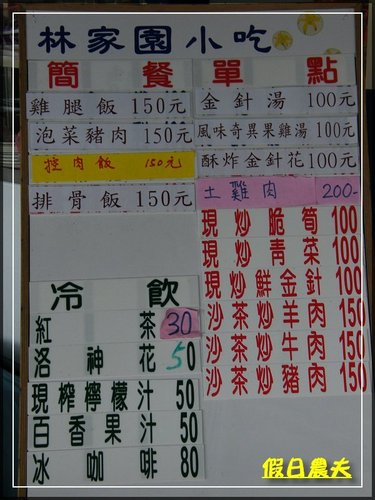 林家園小吃
簡餐 單點
雞腿飯 150元
泡菜豬肉 150元
控肉飯 150元
排骨飯 150元
金針湯 100元
風味奇異果雞湯 100元
酥炸金針花 100元
土雞肉 200-
現炒脆筍 100
現炒青菜 100
現炒鮮金針 100
沙茶炒羊肉 150
沙茶炒牛肉 150
沙茶炒豬肉 150
冷飲
紅茶 30
洛神花 50
現榨檸檬汁 50
百香果汁 50
冰咖啡 80
假日農夫